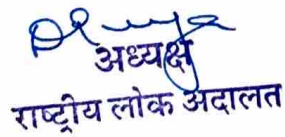 अध्यक्ष
राष्ट्रीय लोक अदालत